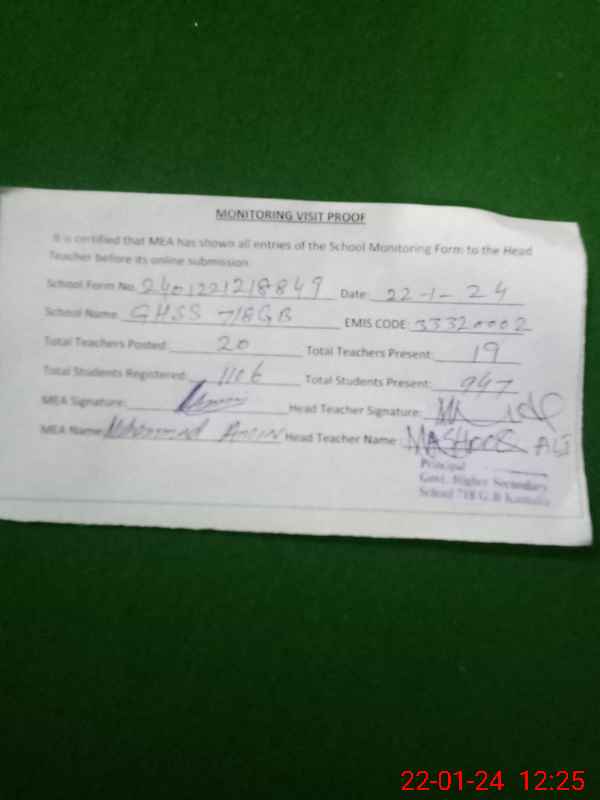 MONITORING VISIT PROOF
It is certified that MEA has shown all entries of the School Monitoring Form to the Head
Teacher before its online submission.
School Form No. 2401221218849 Date: 22-1-24
School Name: GHSS 718GB EMIS CODE: 33320002
Total Teachers Posted: 20 Total Teachers Present: 19
Total Students Registered: 1106 Total Students Present: 947
MEA Signature: Head Teacher Signature:
MEA Name: Muhammad Amin Head Teacher Name: MASHOOR ALI
Principal
Govt. Higher Secondary
School 718 G.B Kamalia
22-01-24 12:25